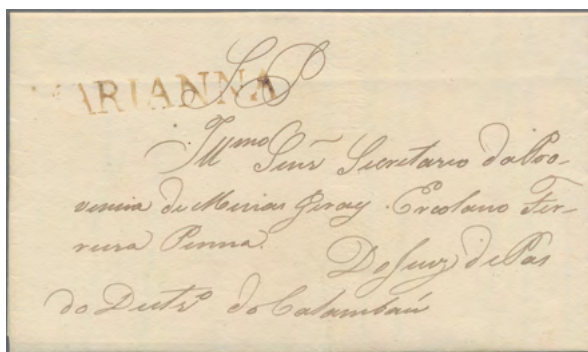 MARIANNA
SP
Illmo Senr Secretario da Pro-
vencia de Menias Geray. Ercolano Fer-
reira Penna.
Do Juiz de Pas
do Destro do Calambaú